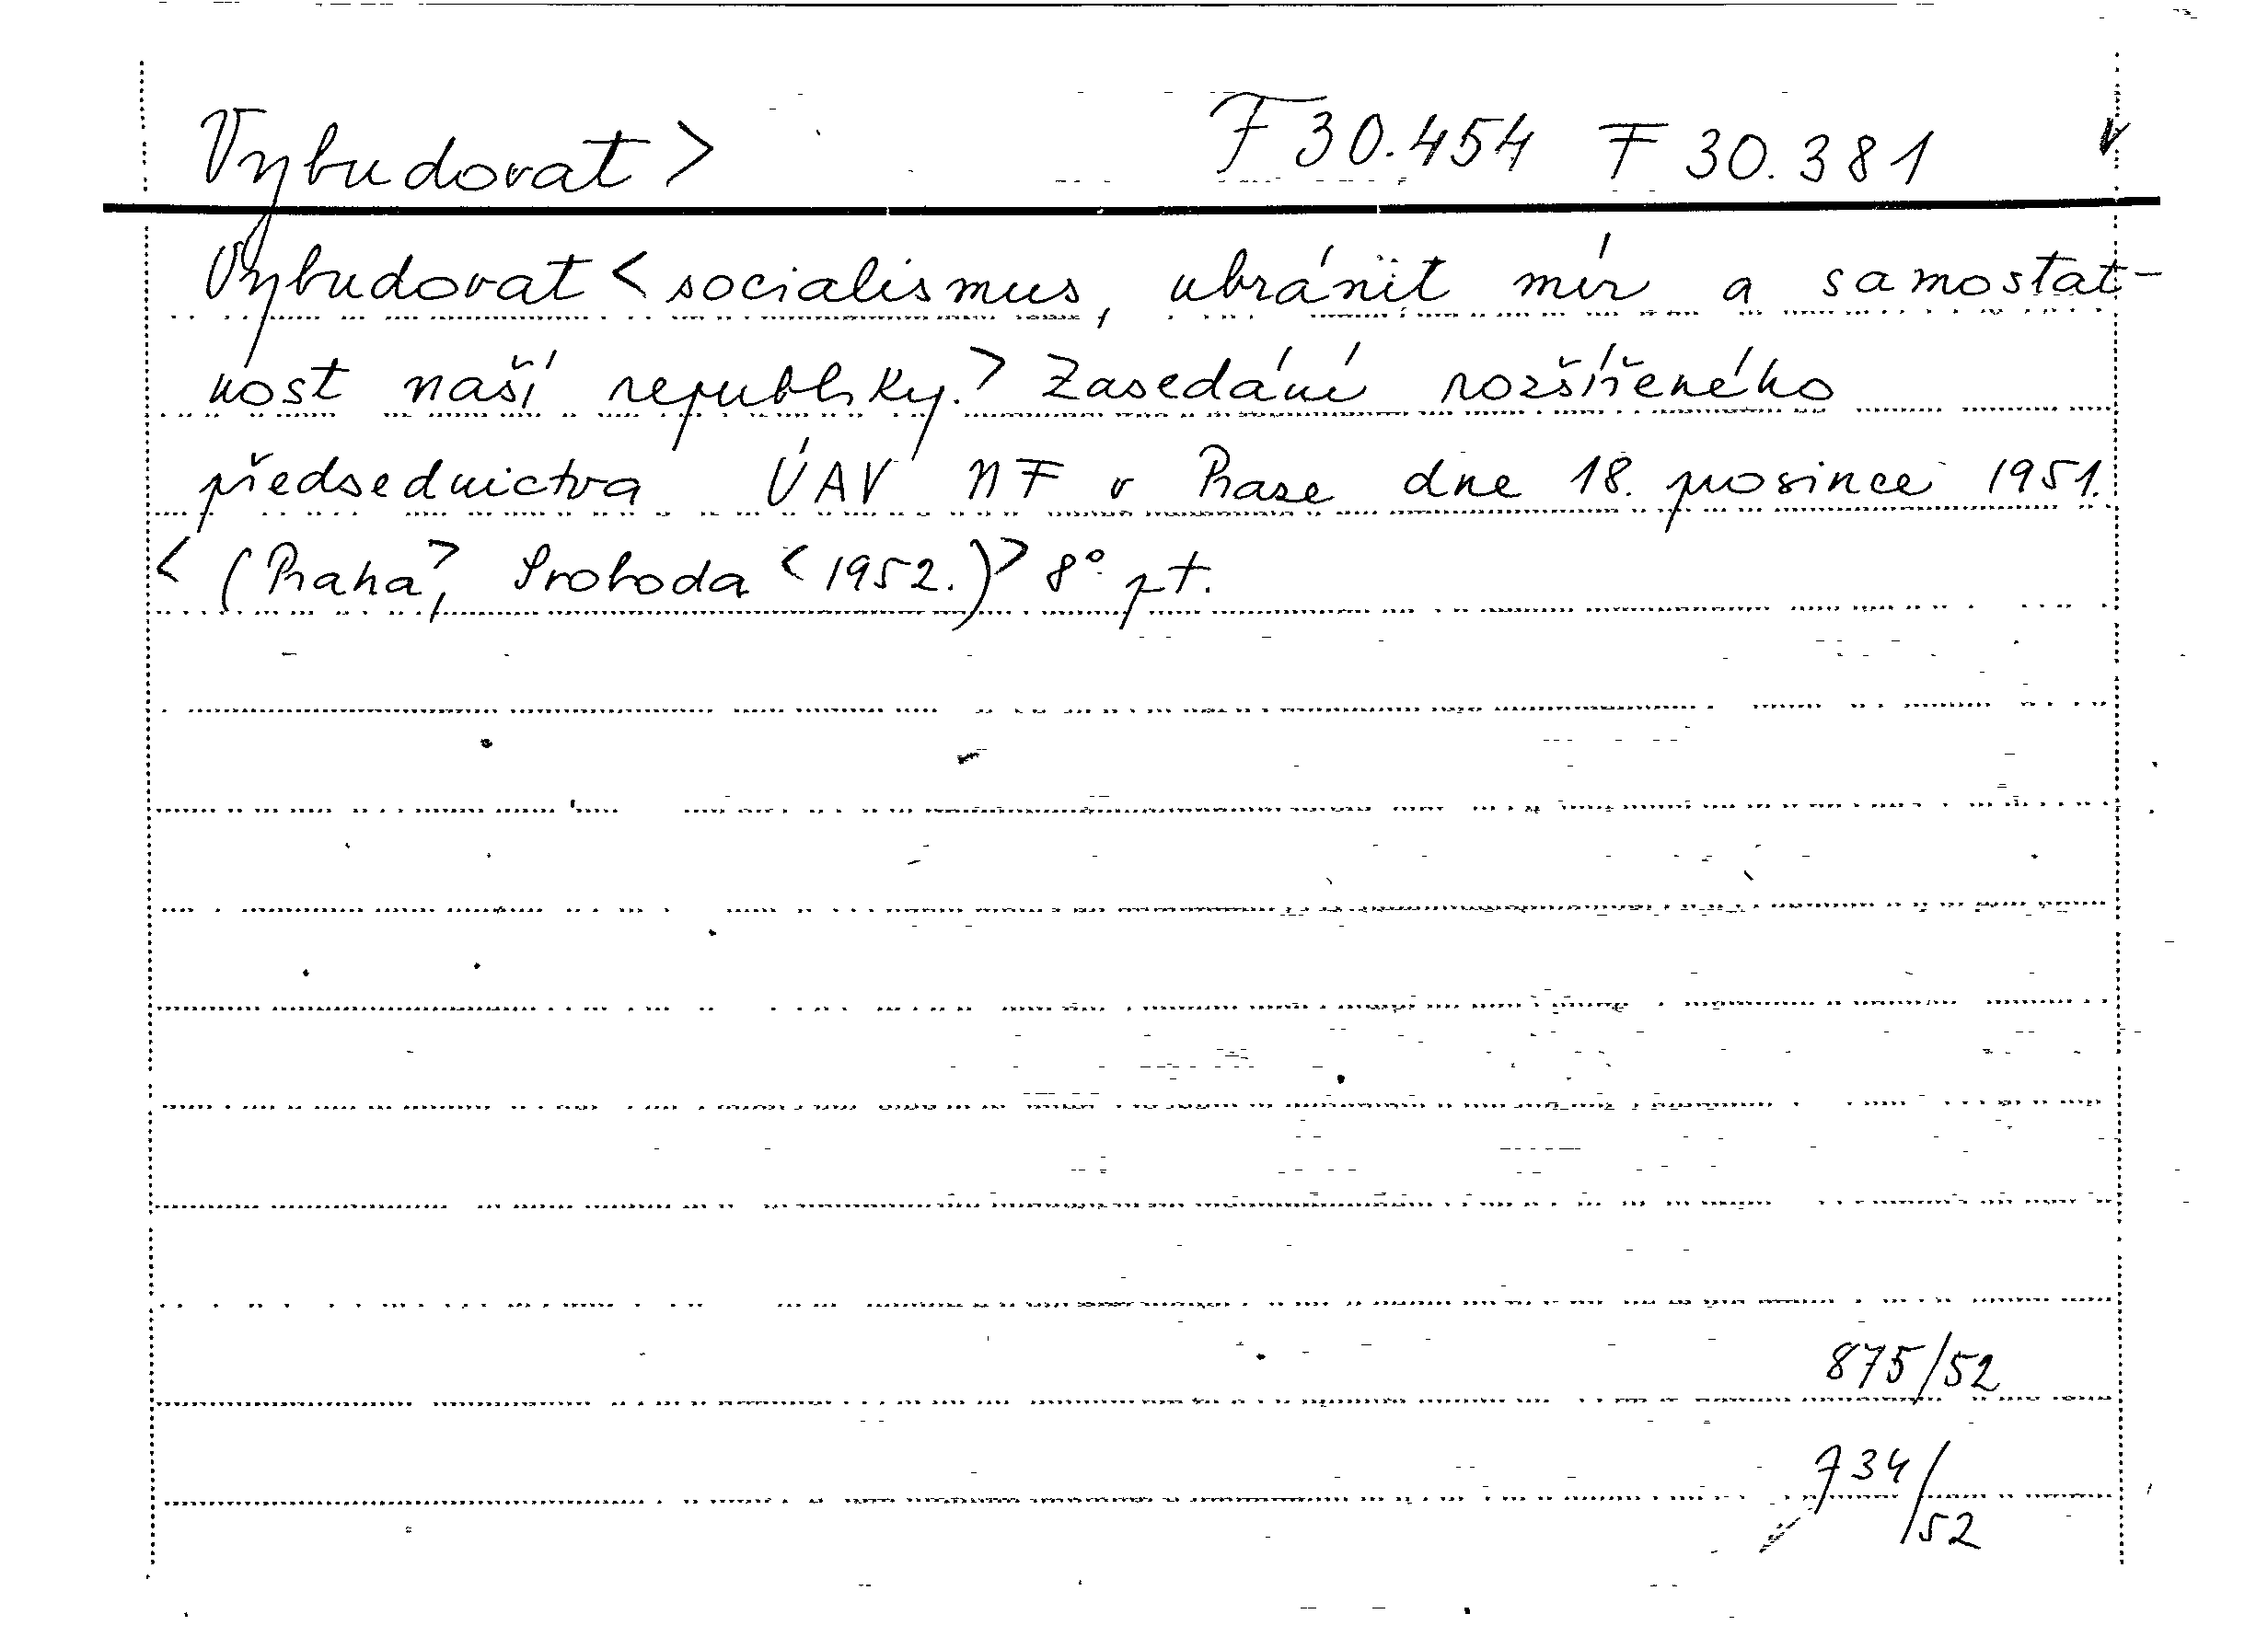 Vybudovat > F 30.454 F 30.381
Vybudovat < socialismus, ubránit mír a samostat-
nost naší republiky.> Zasedání rozšířeného
předsednictva ÚAV NF v Praze dne 18. prosince 1951.
< (Praha>, Svoboda < 1952.)> 8° pt.
875/52
734/52